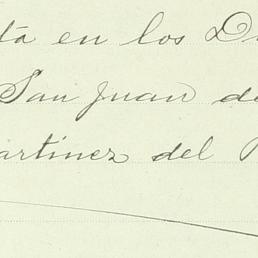 tá en los
San Juan de
artinez del